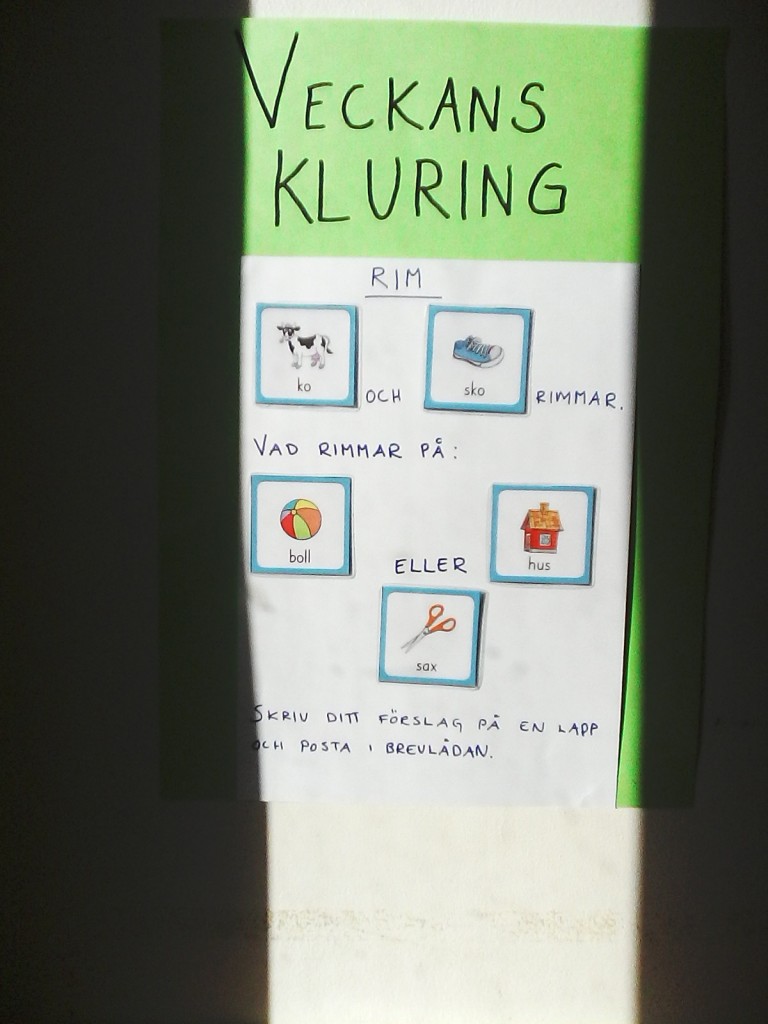 VECKANS
KLURING
RIM
ko OCH sko RIMMAR.
VAD RIMMAR PÅ:
boll ELLER hus
sax
SKRIV DITT FÖRSLAG PÅ EN LAPP
OCH POSTA I BREVLÅDAN.